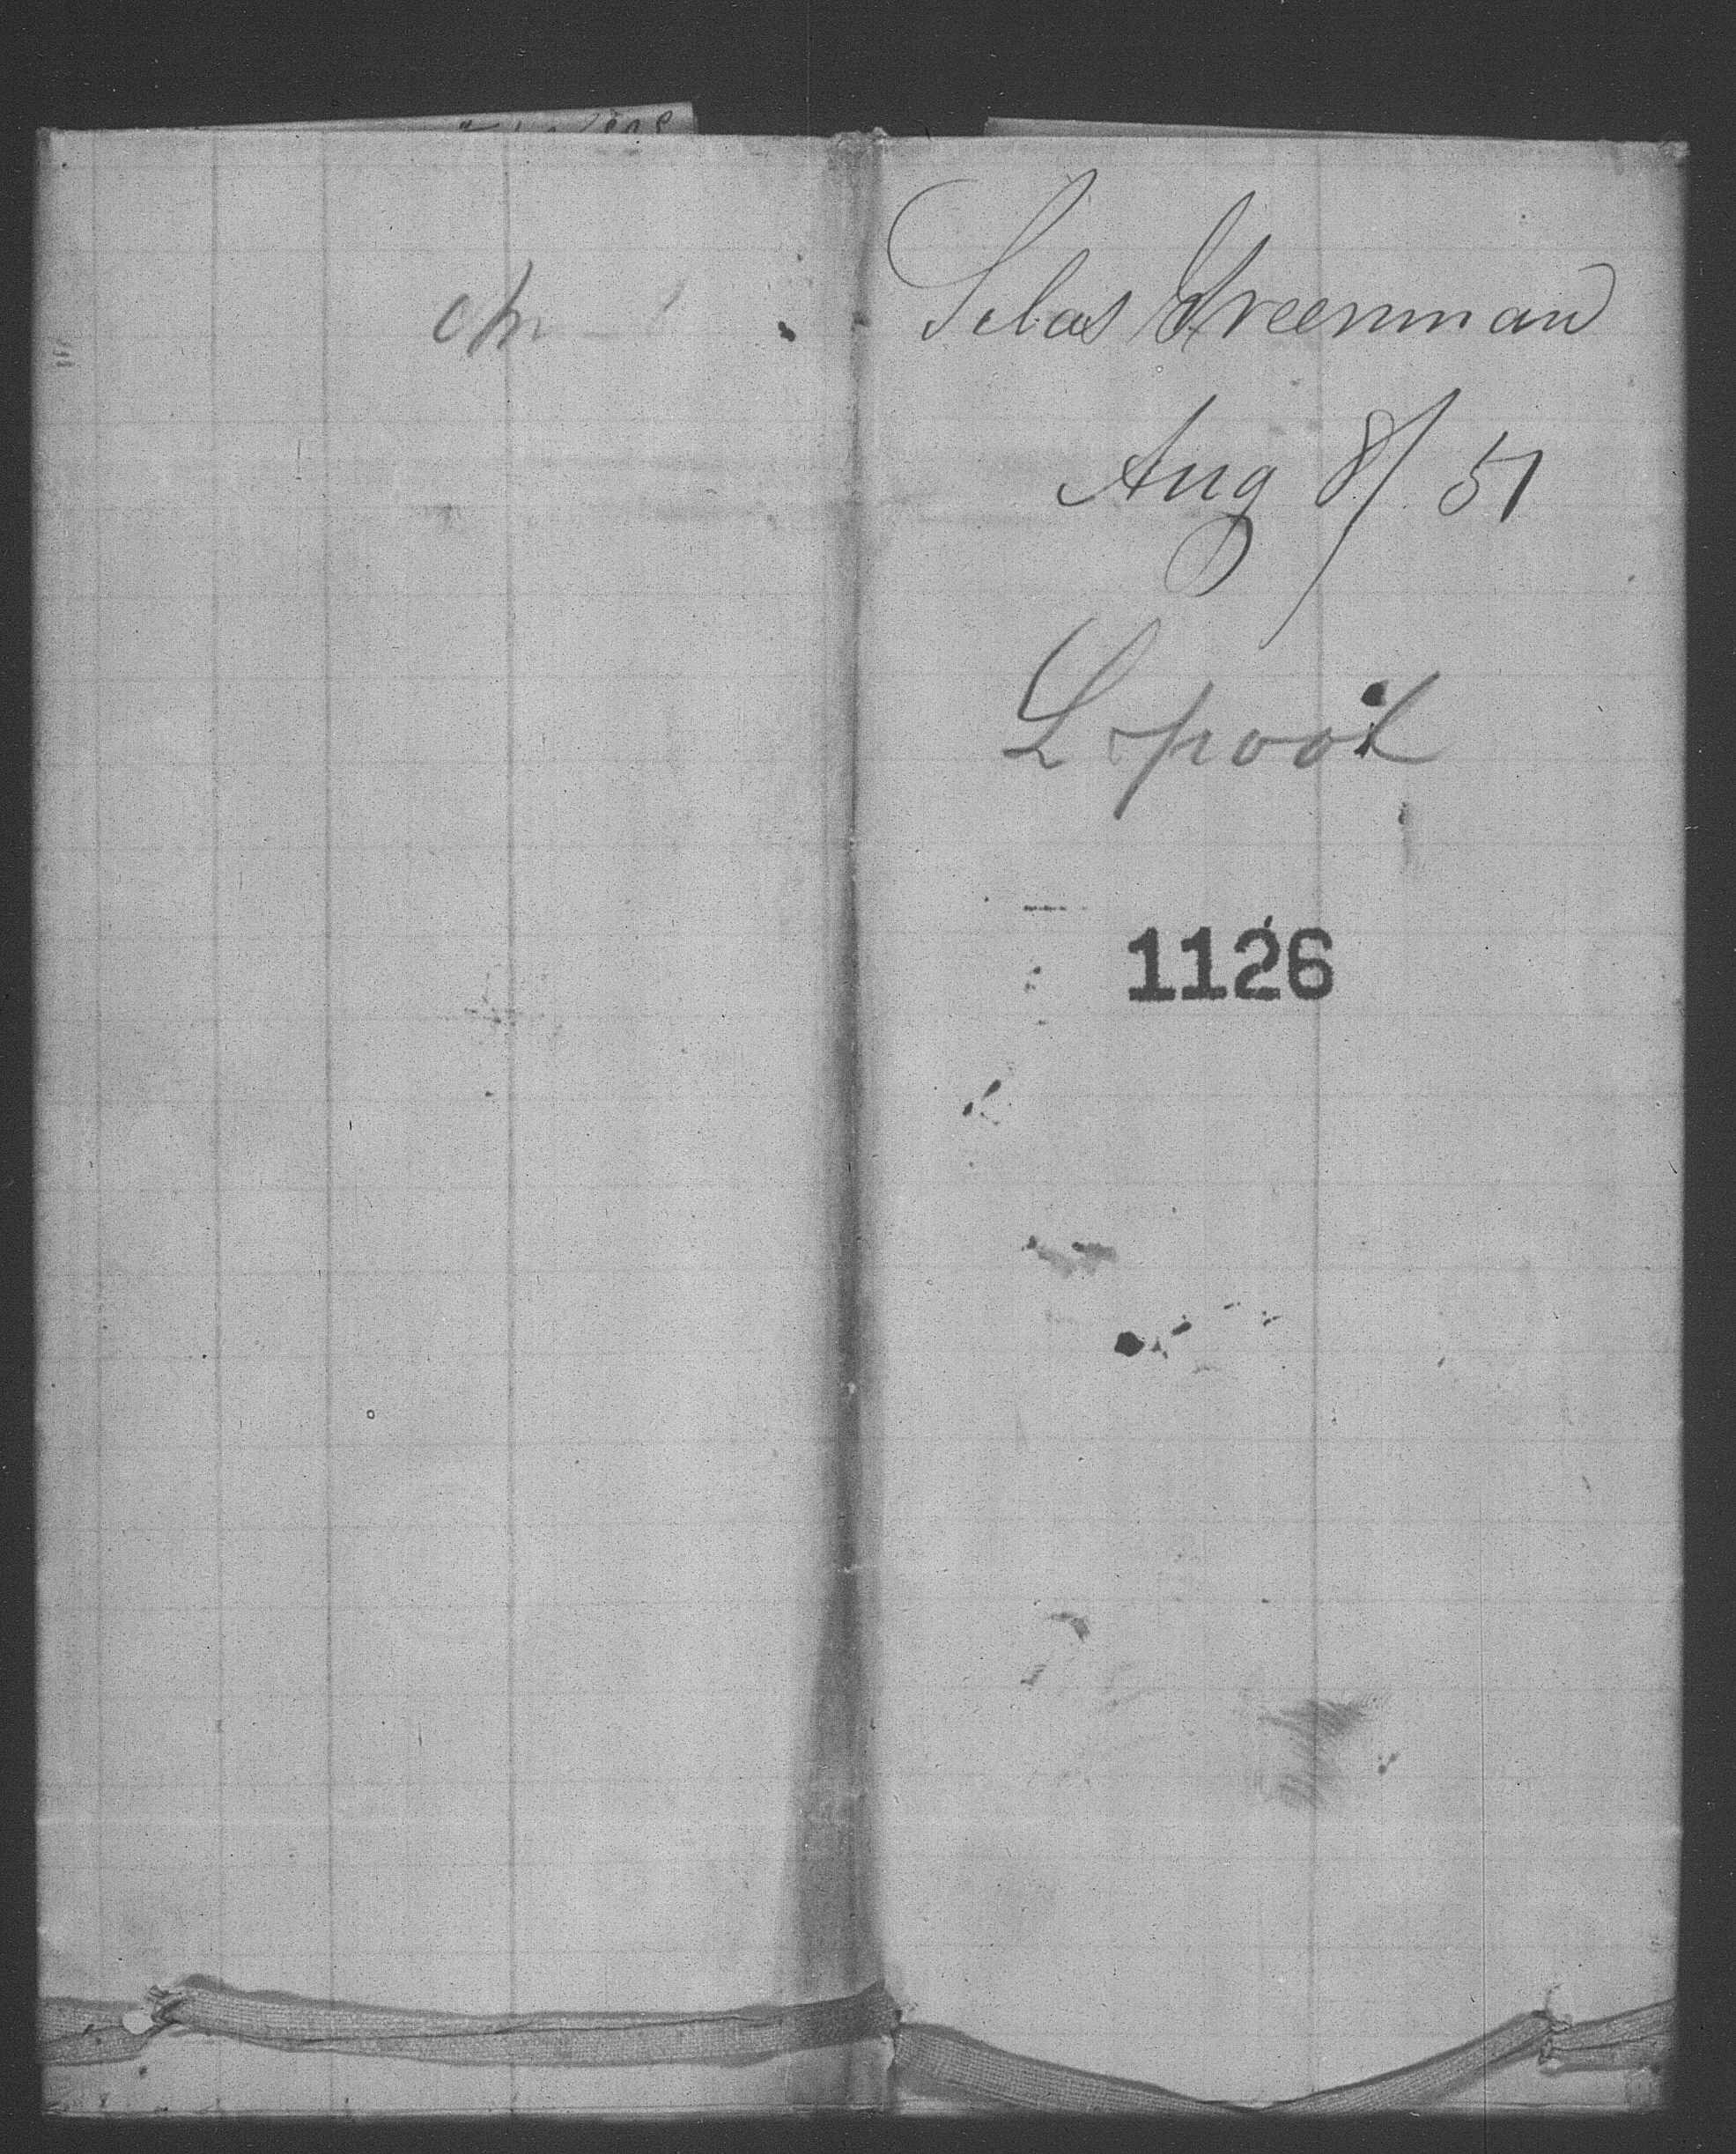 Silas Greenman
Aug 8/51
L pool
1126